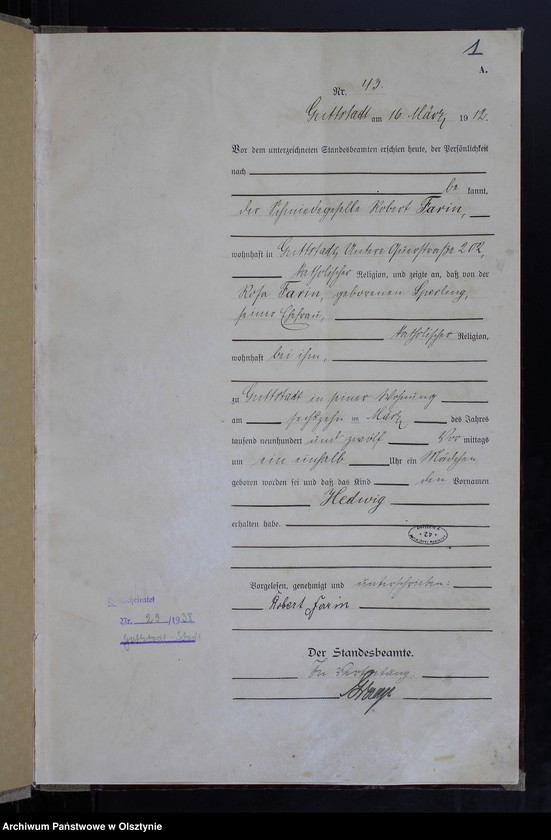 1
A.
Nr. 43.
Guttstadt am 16. März 1912.
Vor dem unterzeichneten Standesbeamten erschien heute, der Persönlichkeit
nach
be kannt,
der Schmiedegeselle Robert Farin,
wohnhaft in Guttstadt, Untere Querstraße 202,
katholischer Religion, und zeigte an, daß von der
Rosa Farin, geborenen Sperling,
seiner Ehefrau,
katholischer Religion,
wohnhaft bei ihm,
zu Guttstadt in seiner Wohnung
am sechszehn ten März des Jahres
tausend neunhundert und zwölf Vor mittags
um ein einhalb Uhr ein Mädchen
geboren worden sei und daß das Kind den Vornamen
Hedwig
erhalten habe.
* 42 *
Vorgelesen, genehmigt und unterschrieben:
Robert Farin
Nr. 29 /1938
Guttstadt-Stadt
Der Standesbeamte.
In Vertretung.
Archiwum Państwowe w Olsztynie